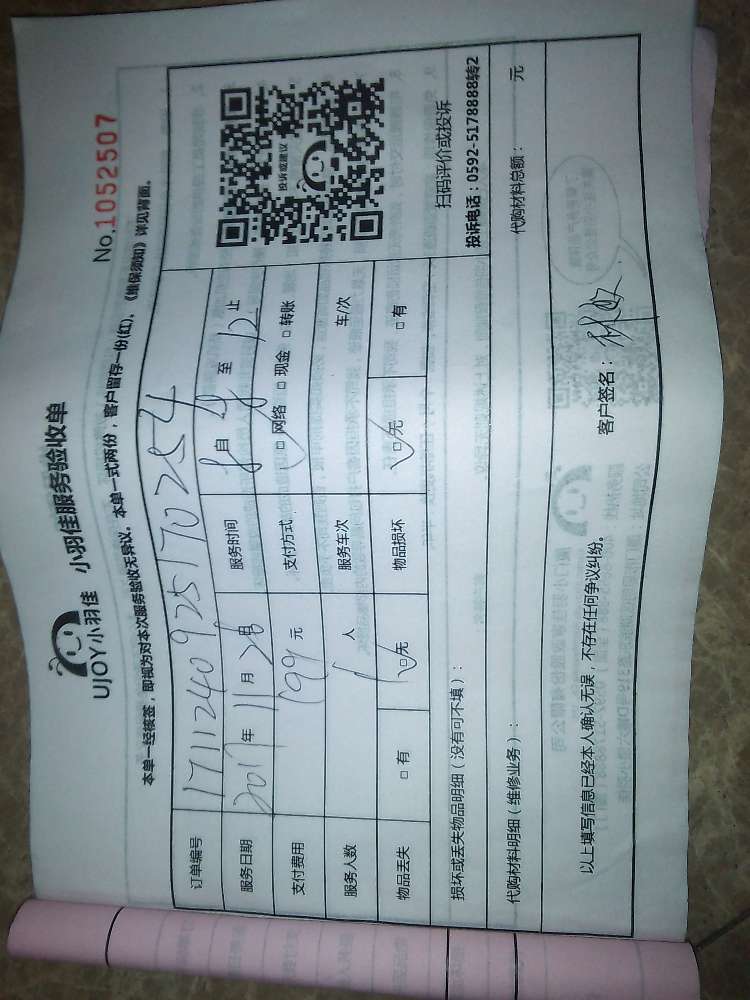 UJOY小羽佳 小羽佳服务验收单
No.1052507
本单一经核签，即视为对本次服务验收无异议。本单一式两份，客户留存一份(红)。《维保须知》详见背面。
订单编号 171124092517 0254
服务日期 2017年11月26日 服务时间 自 8 至 12 止
支付费用 199元 支付方式 □网络 □现金 □转账
服务人数 1人 服务车次 车/次
物品丢失 □有 □无 物品损坏 □无 □有
投诉或建议
扫码评价或投诉
投诉电话：0592-5178888转2
损坏或丢失物品明细（没有可不填）：
代购材料明细（维修业务）： 代购材料总额： 元
以上填写信息已经本人确认无误，不存在任何争议纠纷。 客户签名：